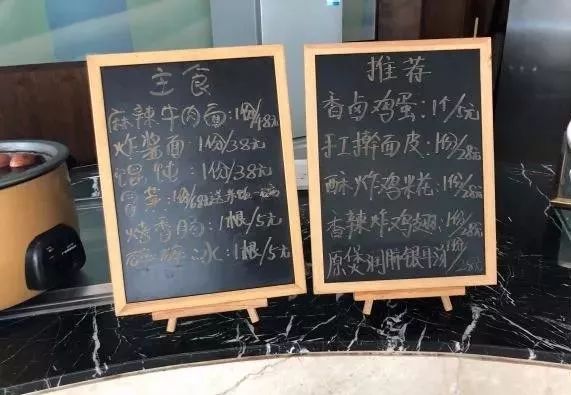 主食
麻辣牛肉面:1份/48元
炸酱面:1份/38元
馄饨:1份/38元
冒菜 1份/68元送米饭一碗
烤香肠:1根/5元
冰:1根/5元
推荐
香卤鸡蛋:1个/5元
手工擀面皮:1份/28元
酥炸鸡米花:1份/28元
香辣炸鸡翅:1份/28元
原煲润肺银耳汤1份/28元